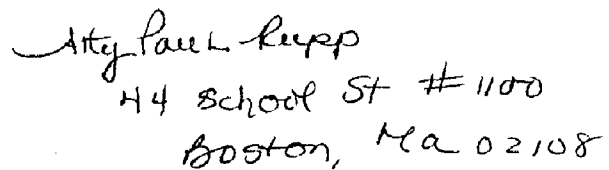 Atty Paul Rupp
44 School St # 1100
Boston, Ma 02108